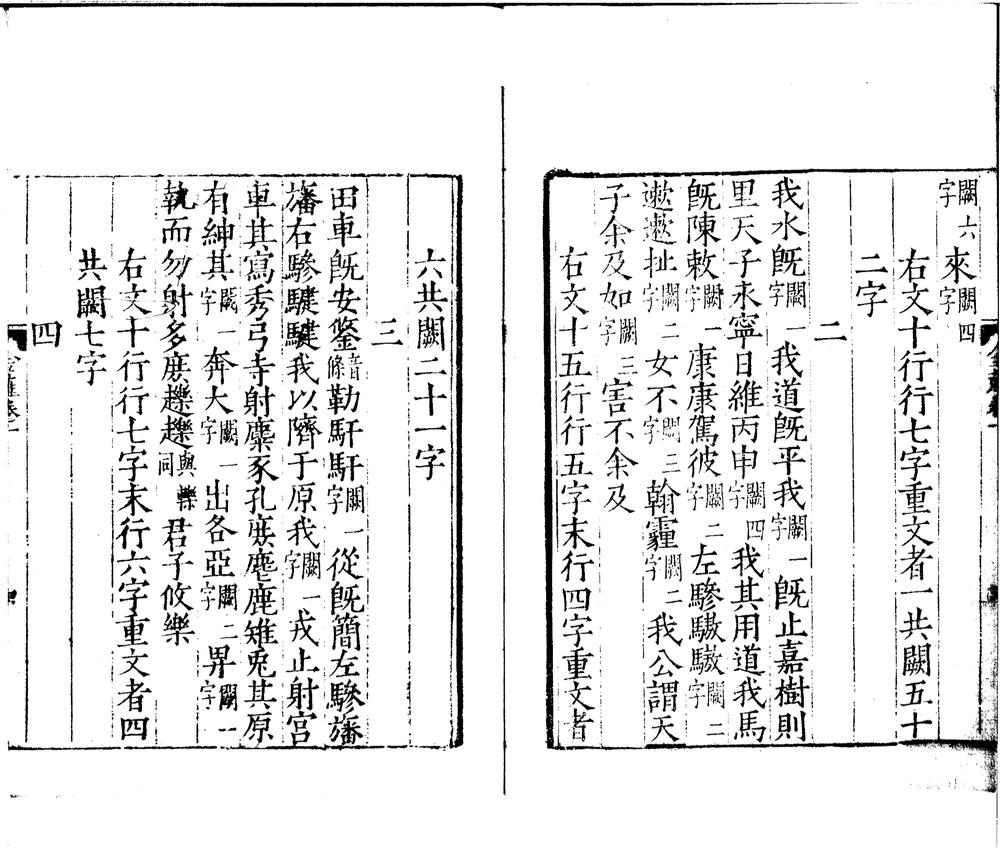 闕六字來闕四字
右文十行行七字重文者一共闕五十
二字
二
我水旣闕一字我道旣平我闕一字旣止嘉樹則
里天子永寧日維丙申闕四字我其用道我馬
旣陳敕闕一字康康駕彼闕二字左驂驐驐闕二字
遬遬扯闕二字女不闕三字翰霾闕二字我公謂天
子余及如闕三字害不余及
右文十五行行五字末行四字重文者
六共闕二十一字
三
田車旣安鋚音絛勒馯馯闕一字從旣簡左驂旛
旛右驂騝騝我以隮于原我闕一字戎止射宮
車其寫秀弓寺射麋豕孔庶麀鹿雉兎其原
有紳其闕一字奔大闕一字出各亞闕二字畀闕一字
執而勿射多庶趮趮與轢同君子攸樂
右文十行行七字末行六字重文者四
共闕七字
四